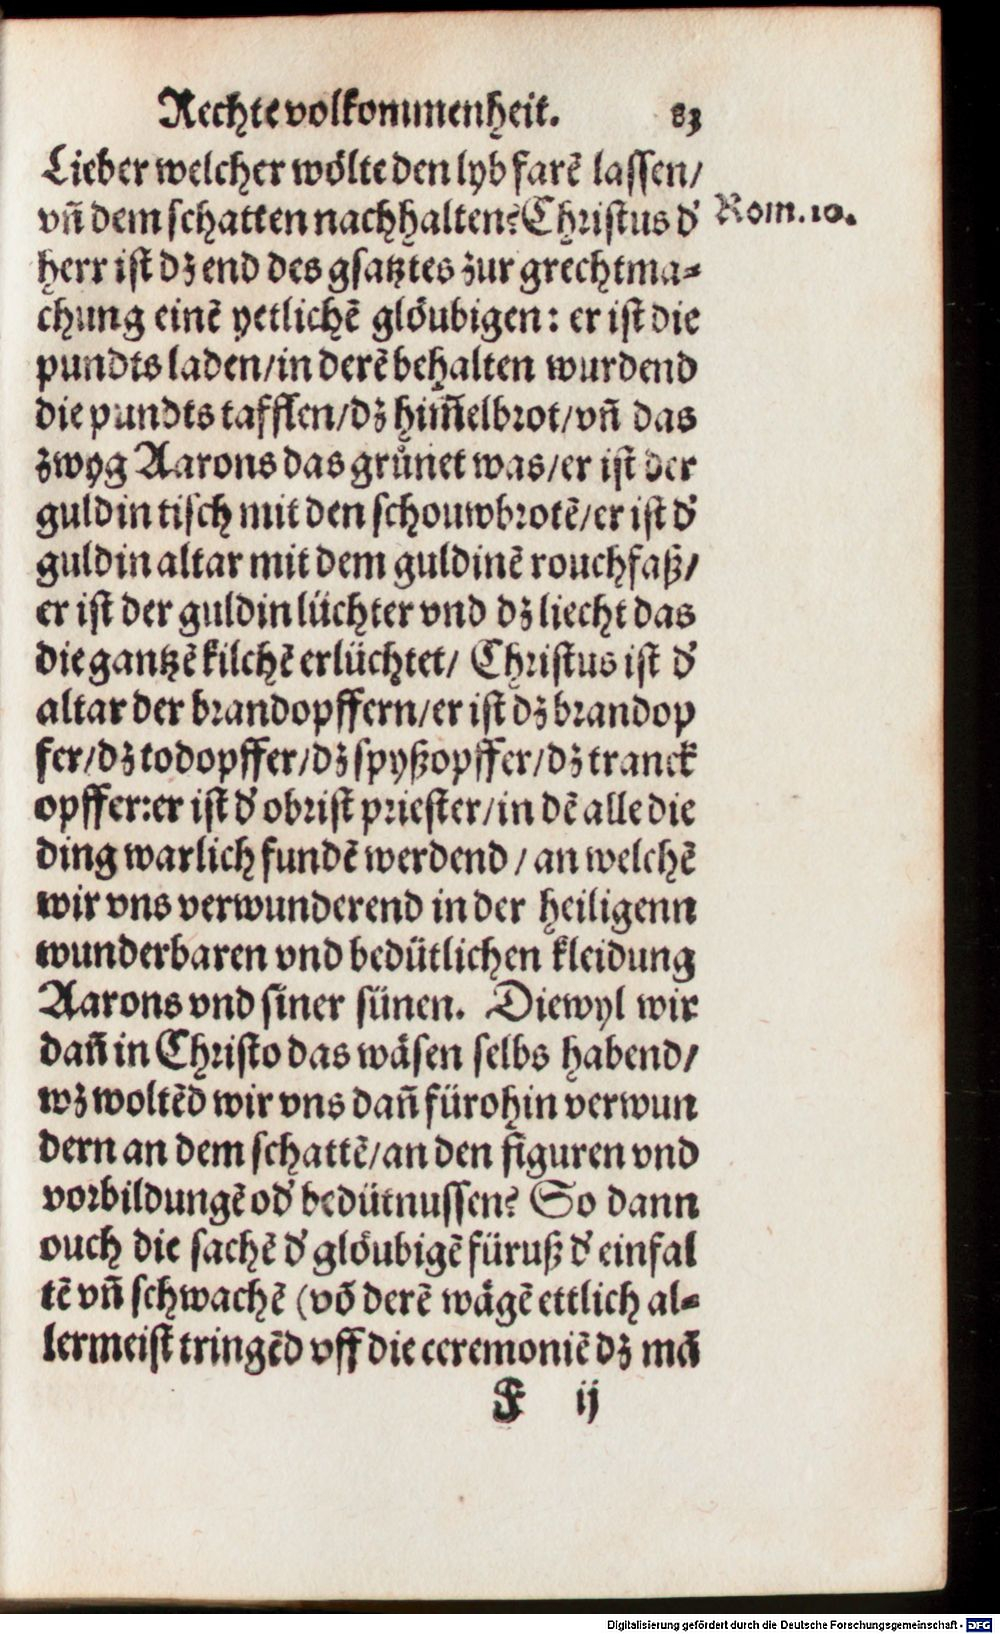 Rechte volkommenheit. 83
Lieber welcher wölte den lyb farē lassen/
vñ dem schatten nachhalten? Christus d'
Rom. 10.
herr ist dz end des gsatztes zur grechtma-
chung einē yetlichē glöubigen: er ist die
pundts laden/in derē behalten wurdend
die pundts tafflen/dz him̃elbrot/vñ das
zwyg Aarons das grůnet was/er ist der
guldin tisch mit den schouwbrotē/er ist d'
guldin altar mit dem guldinē rouchfaß/
er ist der guldin lüchter vnd dz liecht das
die gantzē kilchē erlüchtet/ Christus ist d'
altar der brandopffern/er ist dz brandop
fer/dz todopffer/dz spyßopffer/dz tranck
opffer:er ist d' obrist priester/in dē alle die
ding warlich fundē werdend/an welchē
wir vns verwunderend in der heiligenn
wunderbaren vnd bedütlichen kleidung
Aarons vnd siner sünen. Diewyl wir
dañ in Christo das wäsen selbs habend/
wz woltēd wir vns dañ fürohin verwun
dern an dem schattē/an den figuren vnd
vorbildungē od' bedütnussen? So dann
ouch die sachē d' glöubigē füruß d' einfal
tē vñ schwachē (vō derē wägē ettlich al-
lermeist tringēd vff die ceremoniē dz mā
F ij
Digitalisierung gefördert durch die Deutsche Forschungsgemeinschaft - DFG